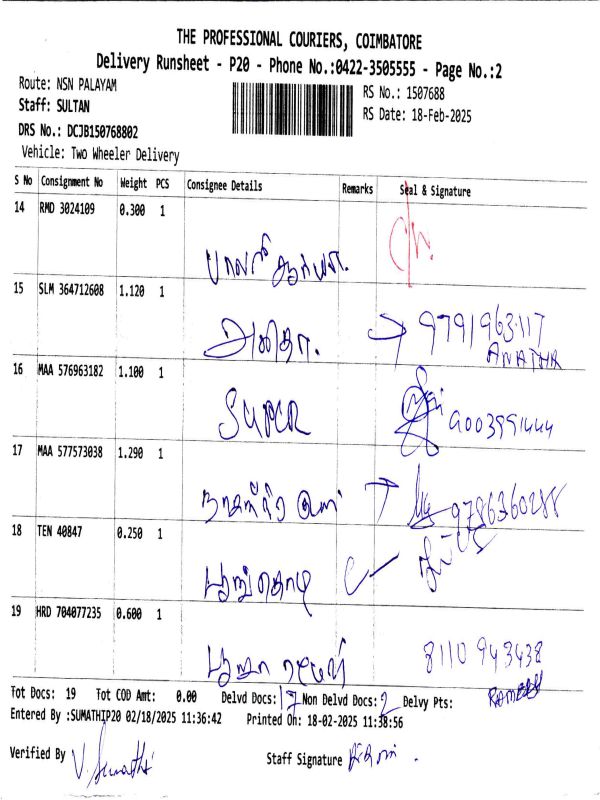 THE PROFESSIONAL COURIERS, COIMBATORE
Delivery Runsheet - P20 - Phone No.:0422-3505555 - Page No.:2
Route: NSN PALAYAM
RS No.: 1507688
Staff: SULTAN
RS Date: 18-Feb-2025
DRS No.: DCJB150768802
Vehicle: Two Wheeler Delivery
S No Consignment No Weight PCS Consignee Details Remarks Seal & Signature
14 RMD 3024109 0.300 1
15 SLM 364712608 1.120 1
அனிதா. 9791963117
ANATHA
16 MAA 576963182 1.100 1
SUPER 9003991444
17 MAA 577573038 1.290 1
9786360288
18 TEN 40847 0.250 1
பூங்கொடி
19 HRD 704077235 0.600 1
பூஜா 8110943438
RAMESH
Tot Docs: 19 Tot COD Amt: 0.00 Delvd Docs: 17 Non Delvd Docs: 2 Delvy Pts:
Entered By :SUMATHIP20 02/18/2025 11:36:42 Printed On: 18-02-2025 11:38:56
Verified By V. Sumathi Staff Signature